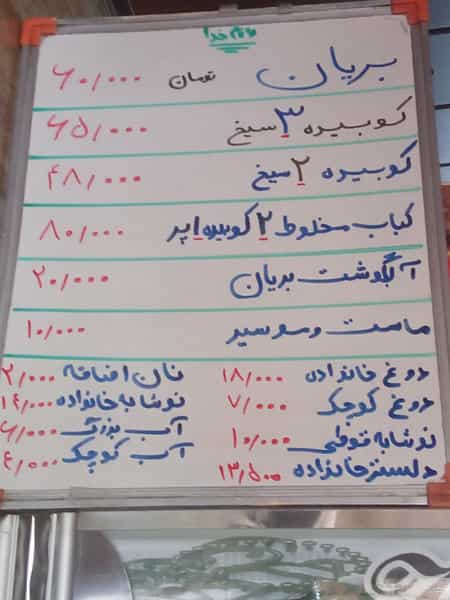 بنام خدا
بریان تومان ۶۰/۰۰۰
کوبیده ۳ سیخ ۶۵/۰۰۰
کوبیده ۲ سیخ ۴۸/۰۰۰
کباب مخلوط ۲ کوبیده ۱ پر ۸۰/۰۰۰
آبگوشت بریان ۲۰/۰۰۰
ماست و سوسیر ۱۰/۰۰۰
دوغ خانواده ۱۸/۰۰۰ نان اضافه ۲/۰۰۰
دوغ کوچک ۷/۰۰۰ نوشابه خانواده ۱۴/۰۰۰
نوشابه قوطی ۱۰/۰۰۰ آب بزرگ ۶/۰۰۰
دلستر خانواده ۱۳/۵۰۰ آب کوچک ۴/۰۰۰